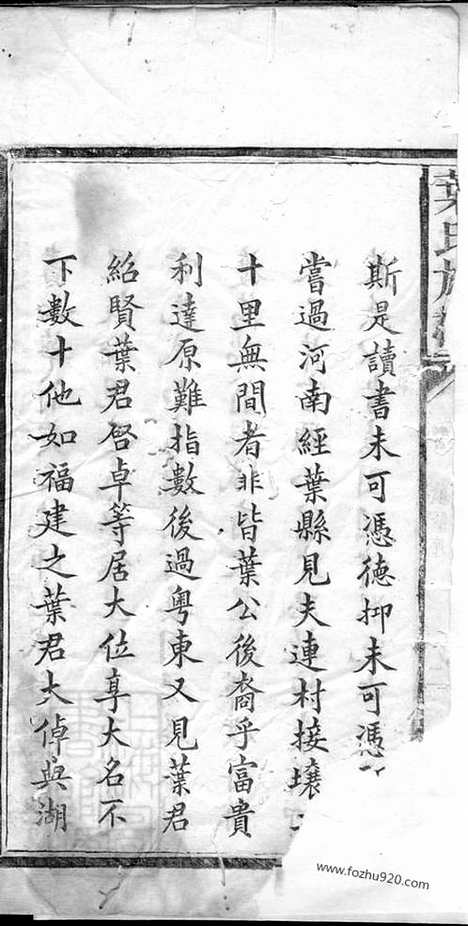 葉氏族
斯是讀書未可憑德抑未可憑
嘗過河南經葉縣見夫連村接壤
十里無間者非皆葉公後裔乎富貴
利達原難指數後過粵東又見葉君
紹賢葉君啓卓等居大位享大名不
下數十他如福建之葉君大倬與湖
www.fozhu920.com